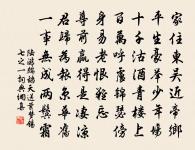 家住東吳近帝鄉
平生豪舉少年場
十千沽酒青樓上
百萬呼盧錦瑟傍
身易老恨難忘
尊前贏得是凄涼
君歸為報京華舊
一事無成兩鬢霜
陸游鷓鴣天送葉夢錫
七之一詞典網